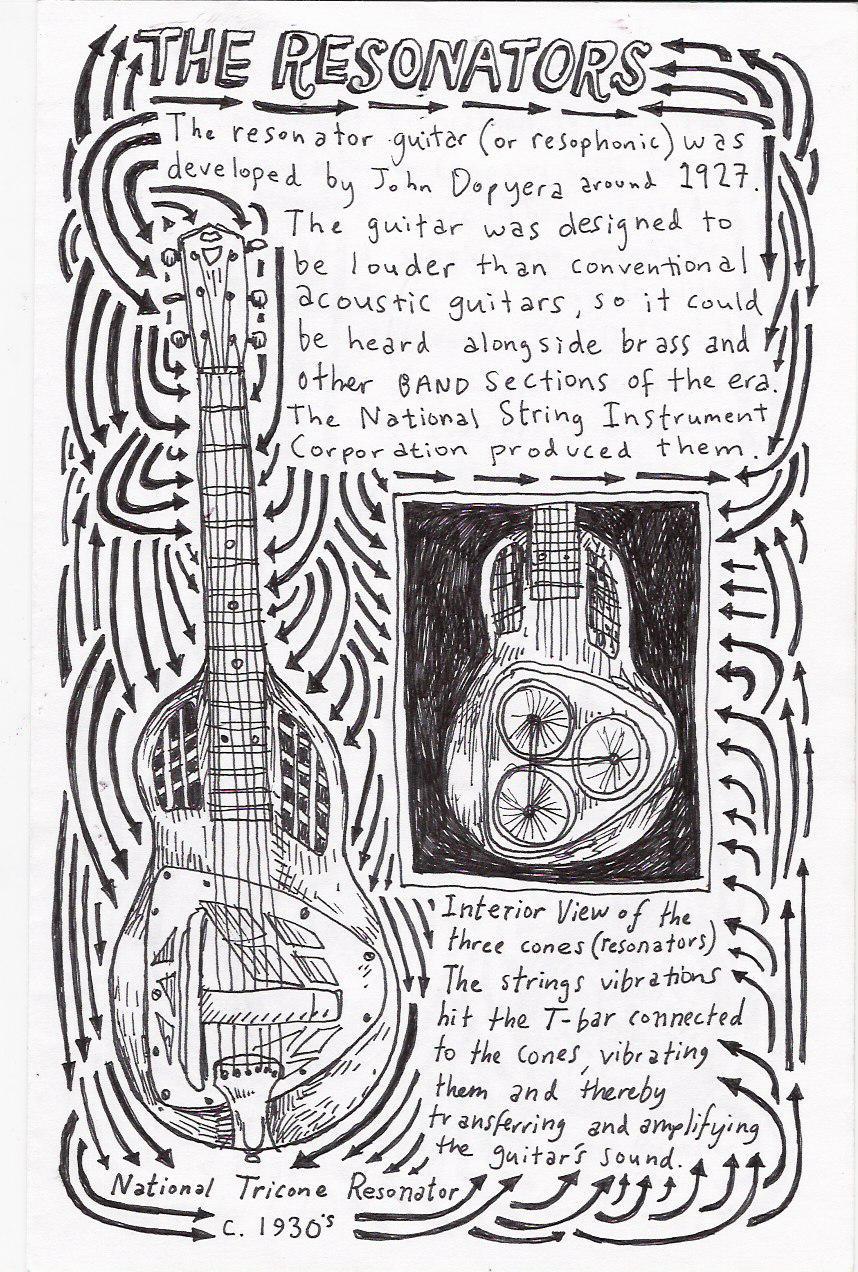 THE RESONATORS
The resonator guitar (or resophonic) was
developed by John Dopyera around 1927.
The guitar was designed to
be louder than conventional
acoustic guitars, so it could
be heard alongside brass and
other BAND sections of the era.
The National String Instrument
Corporation produced them.
Interior View of the
three cones (resonators)
The strings vibrations
hit the T-bar connected
to the cones, vibrating
them and thereby
transferring and amplifying
the guitar's sound.
National Tricone Resonator
c. 1930's